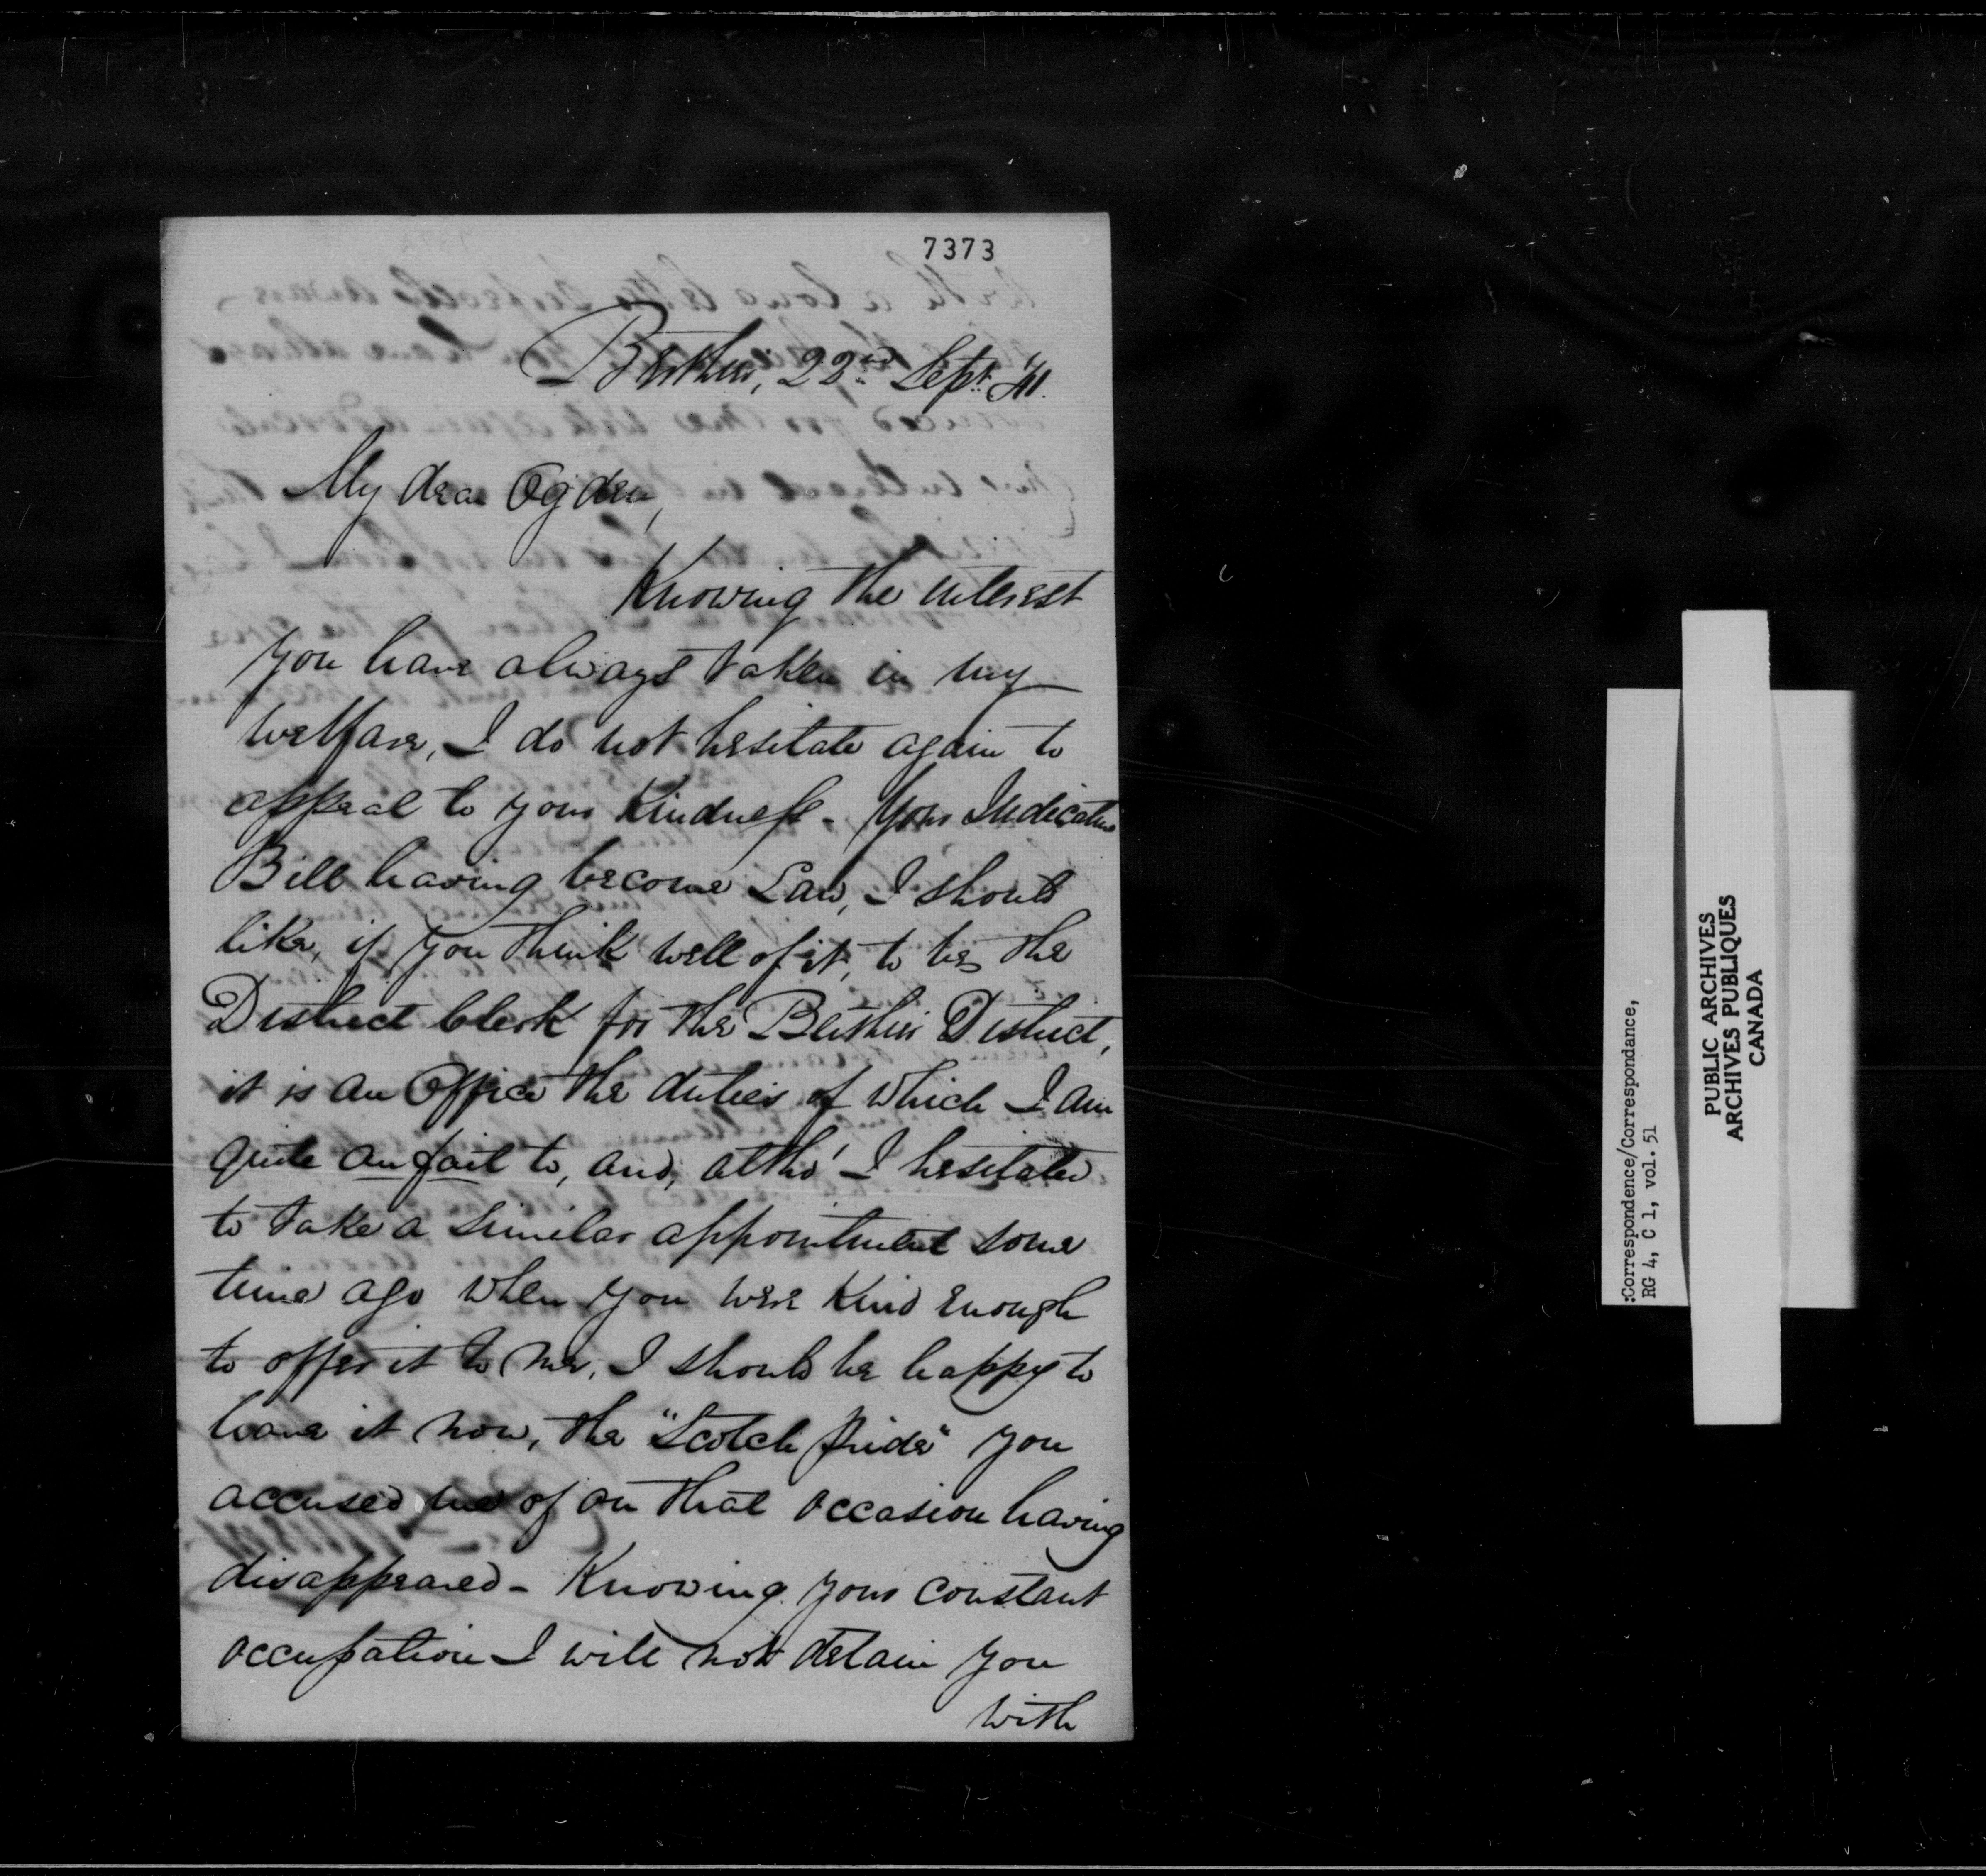 7373
Berthier, 22nd Sept. 41.
My dear Ogden,
Knowing the interest
you have always taken in my
welfare, I do not hesitate again to
appeal to your Kindness - Your Judicature
Bill having become Law, I should
like, if you think well of it, to be the
District Clerk for the Berthier District,
it is an Office the duties of which I am
quite au fait to, and, altho' I hesitated
to take a similar appointment some
time ago when you were Kind enough
to offer it to me, I should be happy to
have it now, the "Scotch pride" you
accused me of on that occasion having
disappeared - Knowing your constant
occupation I will not detain you
with
:Correspondence/Correspondance,
RG 4, C 1, vol. 51
PUBLIC ARCHIVES
ARCHIVES PUBLIQUES
CANADA